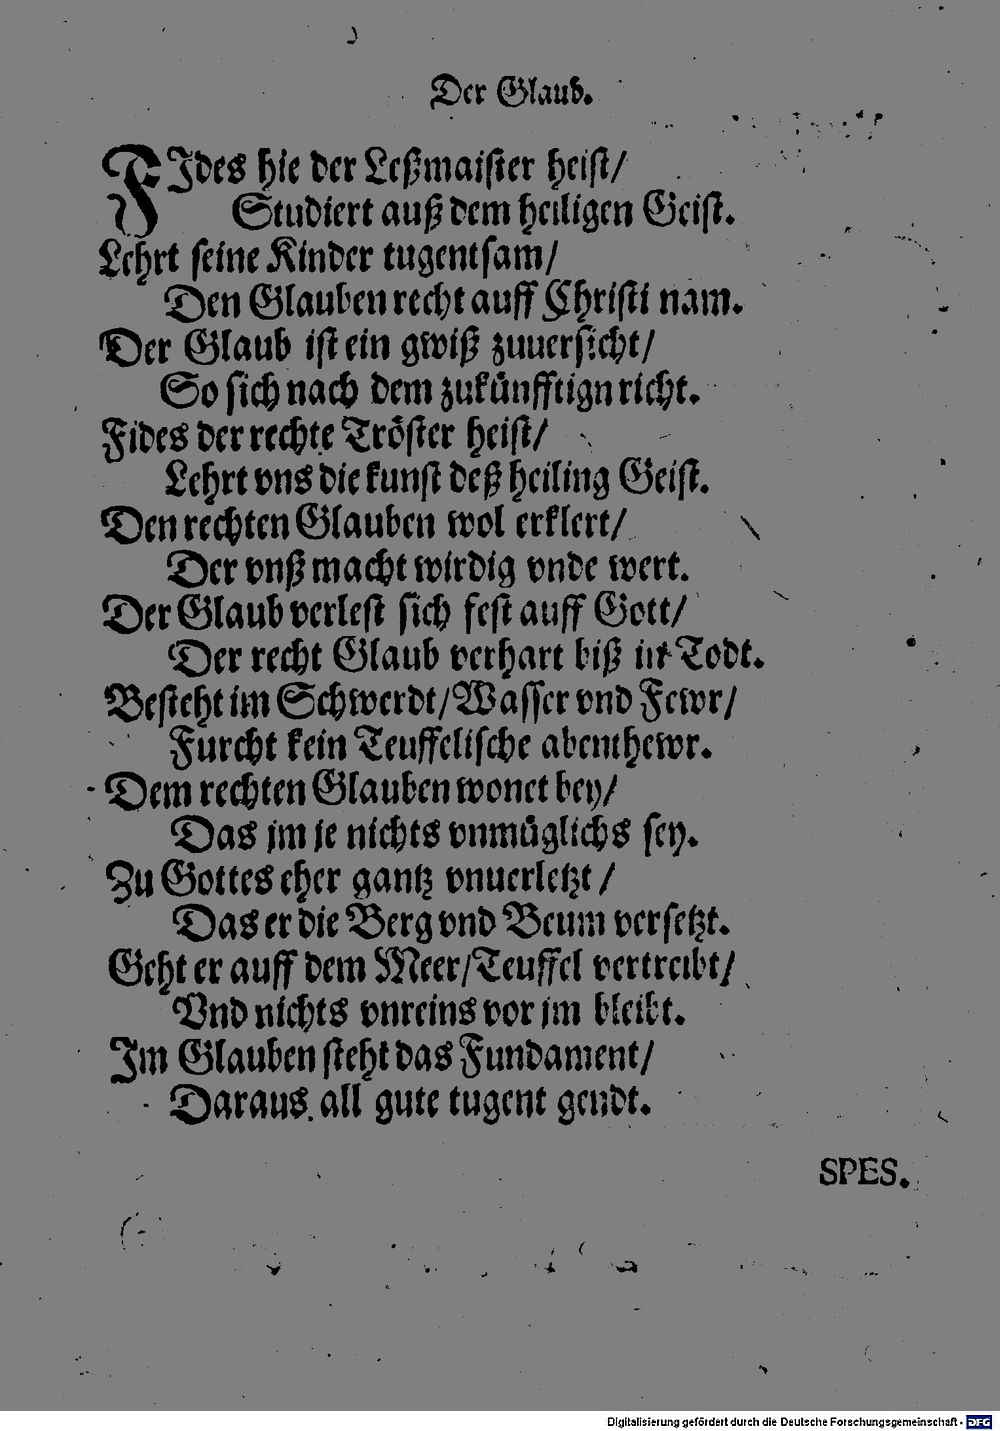 Der Glaub.
FIdes hie der Leßmaister heist/
Studiert auß dem heiligen Geist.
Lehrt seine Kinder tugentsam/
Den Glauben recht auff Christi nam.
Der Glaub ist ein gwiß zuuersicht/
So sich nach dem zukünfftign richt.
Fides der rechte Tröster heist/
Lehrt vns die kunst deß heiling Geist.
Den rechten Glauben wol erklert/
Der vnß macht wirdig vnde wert.
Der Glaub verlest sich fest auff Gott/
Der recht Glaub verhart biß in Todt.
Besteht im Schwerdt/Wasser vnd Fewr/
Furcht kein Teuffelische abenthewr.
Dem rechten Glauben wonet bey/
Das jm je nichts vnmüglichs sey.
Zu Gottes eher gantz vnuerletzt/
Das er die Berg vnd Beum versetzt.
Geht er auff dem Meer/Teuffel vertreibt/
Vnd nichts vnreins vor jm bleibt.
Im Glauben steht das Fundament/
Daraus all gute tugent gendt.
SPES.
Digitalisierung gefördert durch die Deutsche Forschungsgemeinschaft - DFG